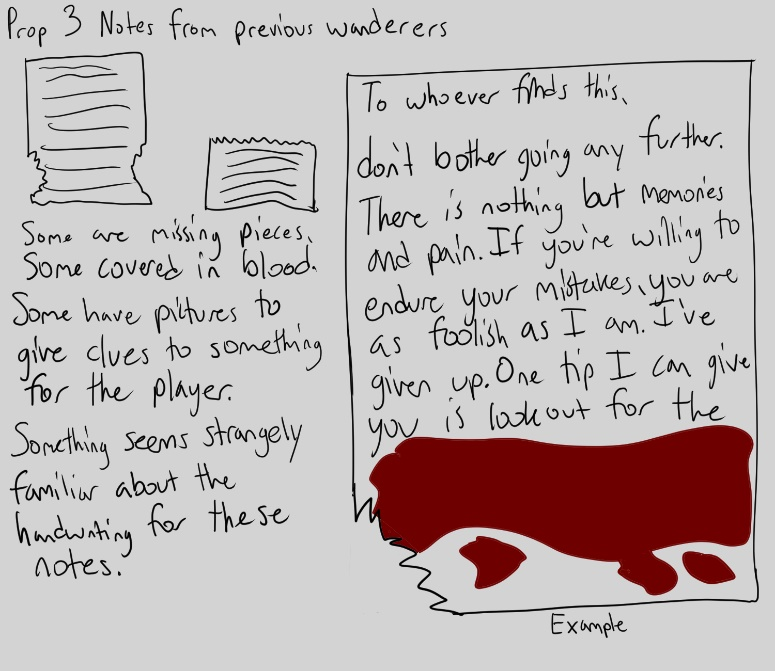 Prop 3 Notes from previous wanderers
Some are missing pieces.
Some covered in blood.
Some have pictures to
give clues to something
for the player.
Something seems strangely
familiar about the
handwriting for these
notes.
To whoever finds this,
don't bother going any further.
There is nothing but memories
and pain. If you're willing to
endure your mistakes, you are
as foolish as I am. I've
given up. One tip I can give
you is lookout for the
Example